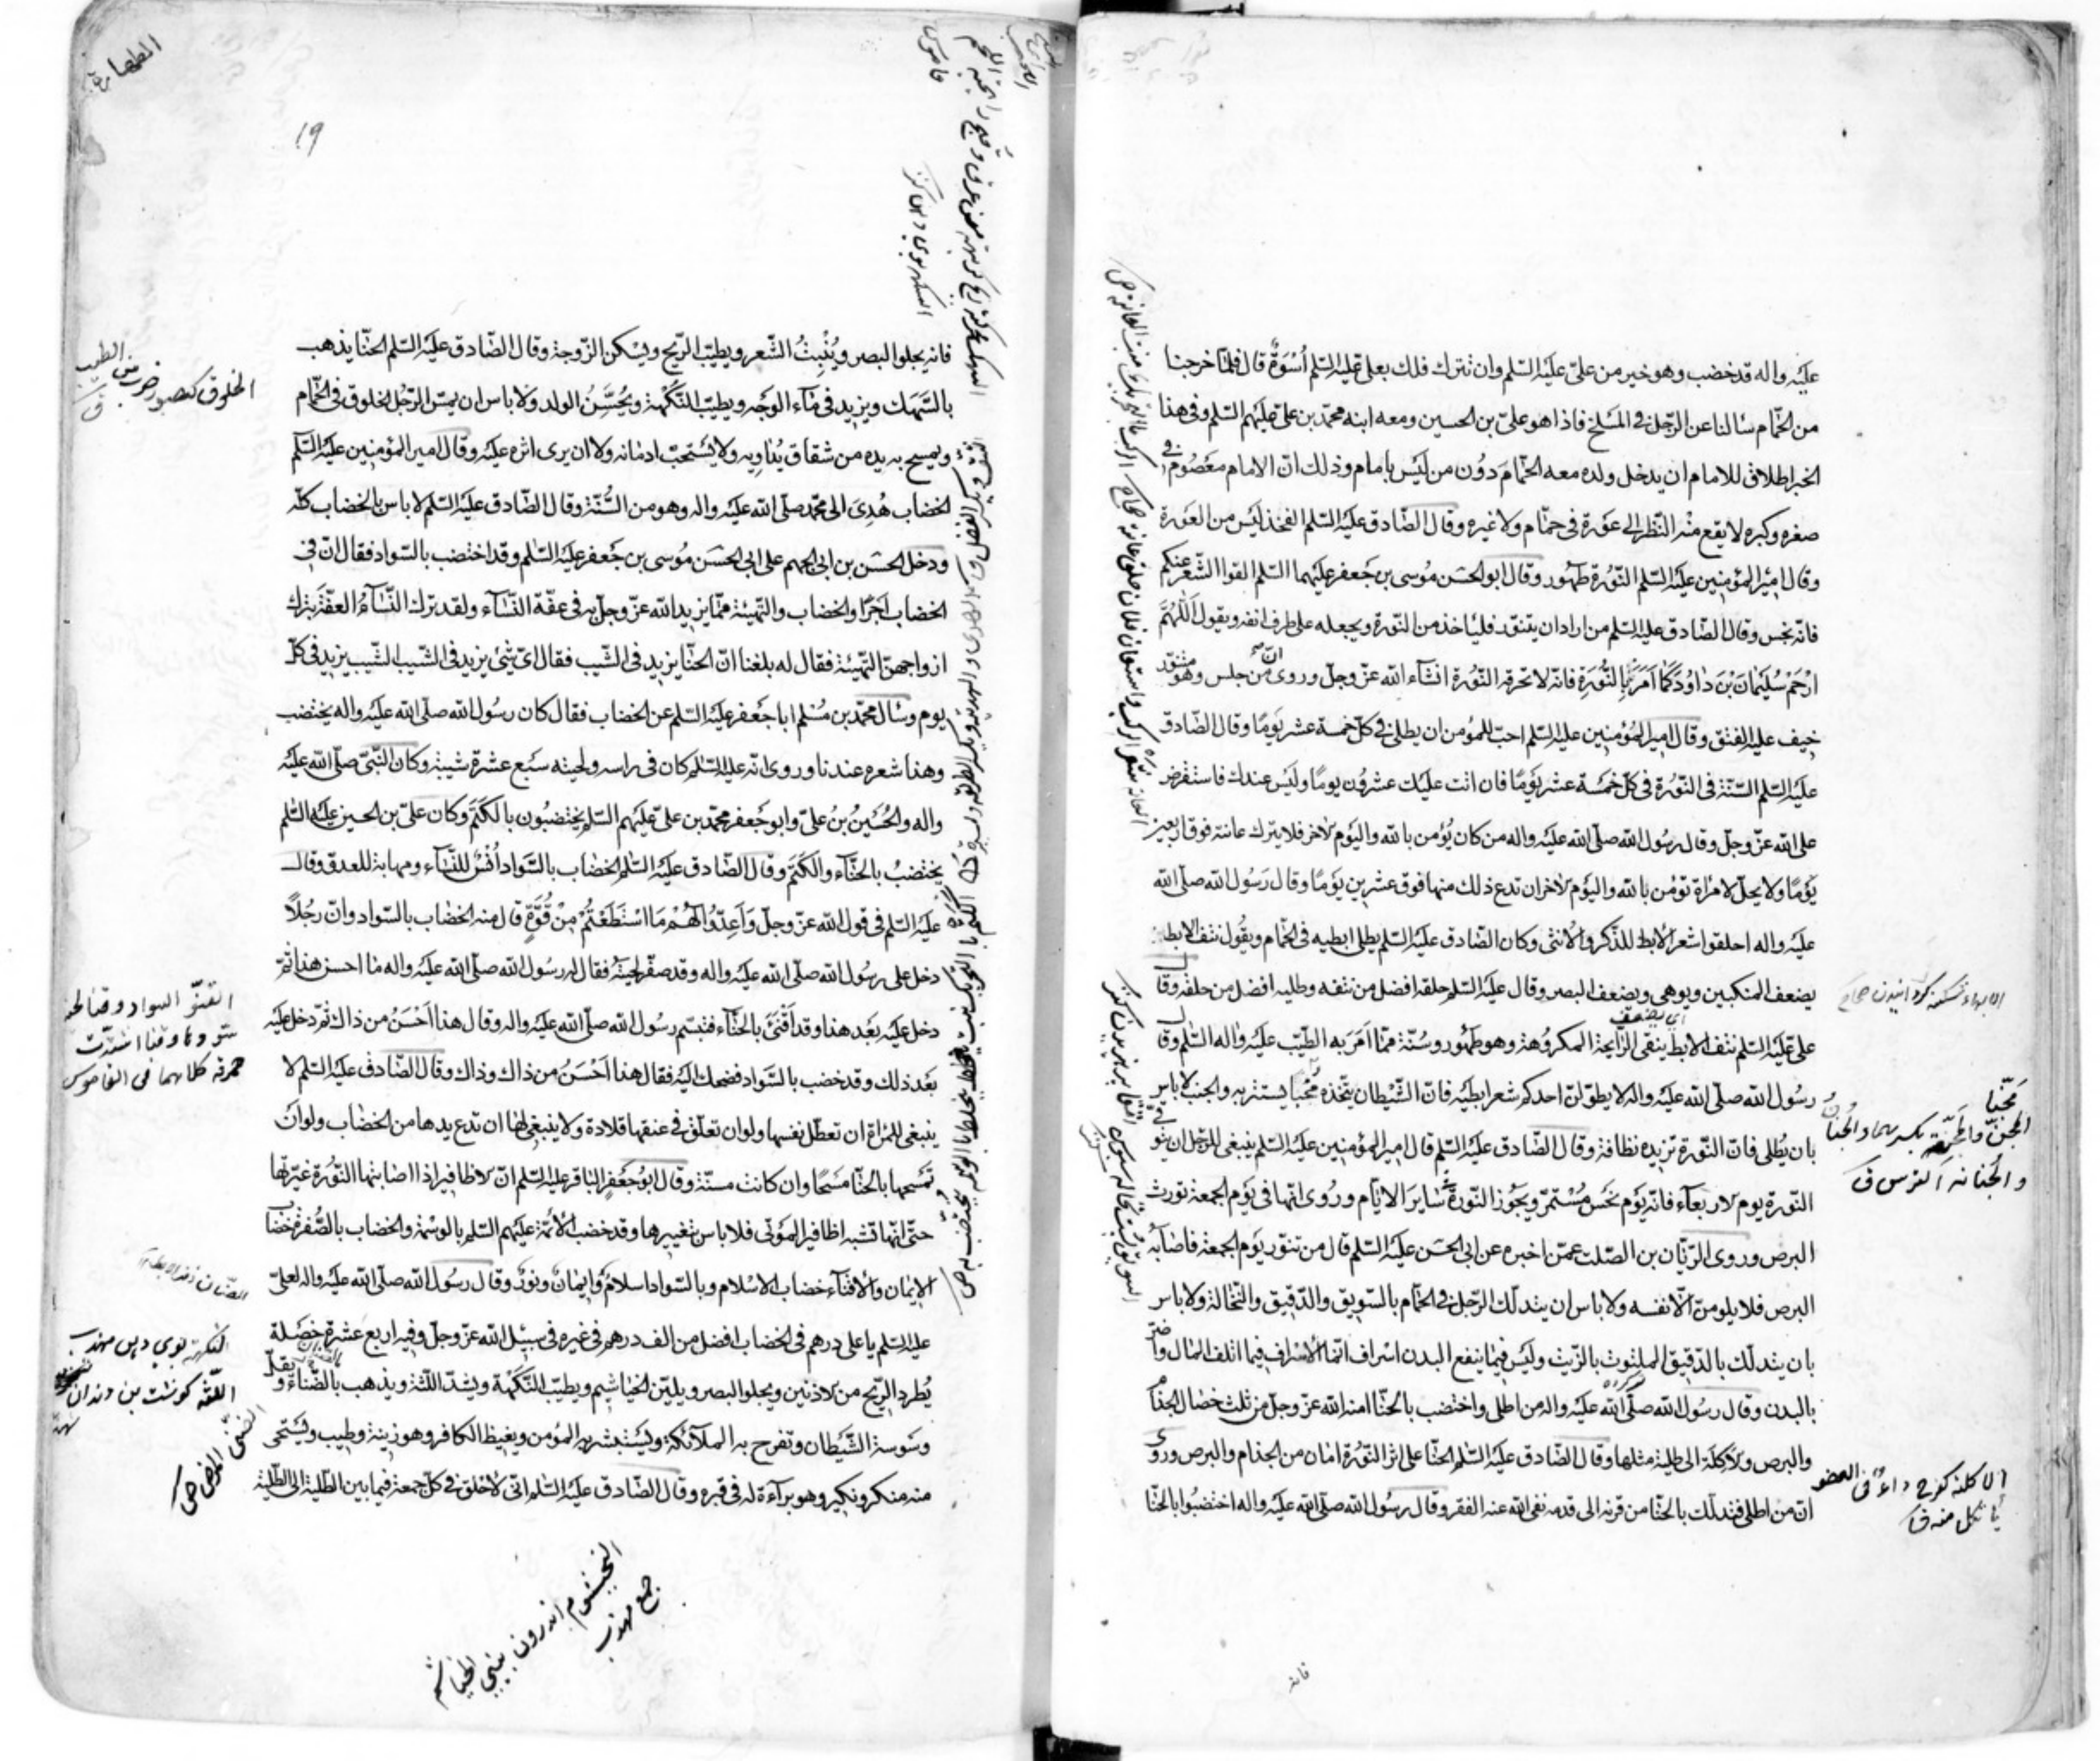 عليه واله قد خضب وهو خير من علىّ عليه السّلم وان تترك فلك بعلى عليه السّلم اُسْوَةٌ قال فلمّا خرجنا
من الحمّام سالنا عن الرّجل فى المَسْلخ فاذا هو علىّ بن الحسين ومعه ابنه محمّد بن علىّ عليهم السّلم وفى هذا
الخبر اطلاق للامام ان يدخل ولده معه الحمّام دوُن من ليْس بامام وذلك انّ الامام معصُوم فى
صغره وكبره لا يقع منْه النّظر الى عَوْرة فى حمّام ولا غيره وقال الصّادق عليه السّلم الفخذ ليْس من العَورة
وقال امير المؤمنين عليه السّلم النّوُرة طهُور وقال ابو الحسَن موُسى بن جَعفر عليهما السّلم القوا الشّعْر عنكم
فانّه نجس وقال الصّادق عليه السّلم من اراد ان يتنوّر فلياخذ من النّورة ويجعله على طرف انفه ويقول اَللّٰهُمَّ
ارْحَمْ سُلَيْمٰانَ بْنَ دٰاوُدَ كَمٰا اَمَرَنٰا بِالنُّورَةِ فانّه لا تحرقه النّوُرة انشآء الله عزّ وجلّ وروى انّ من جلس وهو متنوّر
خيف عليه الفتق وقال امير المُؤمنين عليه السّلم احبّ للمؤمن ان يطلى فى كلّ خمسة عشر يَومًا وقال الصّادق
عليه السّلم السّنّة فى النّوُرة فى كلّ خمْسَة عشر يَومًا فان اتت عليك عشروُن يومًا وليْس عندك فاستقرض
على الله عزّ وجلّ وقال رسُول الله صلّى الله عليه واله من كان يُؤمن بالله واليَوم الاخر فلا يترك عانته فوق اربعين
يَومًا ولا يحلّ لامرْاة تؤمن بالله واليَوم الاخر ان تدع ذلك منها فوق عشرين يَومًا وقال رَسُول الله صلّى الله
عليه واله احلقوا شعر الابط للذّكر والانثى وكان الصّادق عليه السّلم يطلى ابطيه فى الحمّام ويقُول نتف الابط
يضعف المنكبين ويوهى ويضعف البصر وقال عليه السّلم حلقه افضل من نتفه وطليه افضل من حلقه وقال
على عليه السّلم نتف الابط ينفى الرّايحة المكرُوهة وهو طهُور وسُنّة ممّا اَمَرَ به الطّيّب عليه واله السّلم وقال
رسُول الله صلّى الله عليه واله لا يطوّلنّ احدكم شعر ابطيْه فانّ الشّيْطان يتّخذه مِجَنًّا يستتر به والجنب لا باس
بان يُطلى فانّ النّورة تزيده نظافة وقال الصّادق عليه السّلم قال امير المؤمنين عليه السّلم ينبغى للرّجل ان يتوقّى
النّورة يوم الاربعآء فانّه يَوْم نحَسْ مُسْتمرّ ويجُوز النّوُرة فى سٰاير الايّام ورُوى انّها فى يَوْم الجمعة تورث
البرص وروى الرّيّان بن الصّلت عمّن اخبره عن ابى الحسَن عليه السّلم قال من تنوّر يَوم الجمعة فاصٰابهُ
البرص فلا يلومنّ الّا نفسه ولا باس ان يتدلّك الرّجل فى الحمّام بالسّويق والدّقيق والنّخالة ولا باس
بان يتدلّك بالدّقيق الملتوث بالزّيت وليْس فيما ينفع البدن اسْراف انّما الاسْراف فيما اتلف المٰال واضرّ
بالبدن وقال رسُول الله صلّى الله عليه واله من اطلى واختضب بالحنّا امنه الله عزّ وجلّ من ثلٰث خصٰال الجذام
والبرص والاكلة الى طلية مثلها وقال الصّادق عليه السّلم الحنّا على اثر النّورُة امٰان من الجذام والبرص وروى
انّ من اطلى فتدلّك بالحنّا من قرنه الى قدمه نفى الله عنه الفقر وقال رسُول الله صلّى الله عليه واله اختضبُوا بالحنّا
اى يضعّف
الايهاء سست كردانيدن صحاح
مجنّا
المجنّ والمجنّة بكسرهما والجُنانُ
والجُنانة الترس ق
الاكلة كفرح داءٌ فى العضو
يأتكل منه ق
فانه
الطهارة
19
فانه يجلوا البصر ويُنْبِتُ الشّعر ويطيّب الرّيح ويسْكن الزّوجة وقال الصّادق عليه السّلم الحنّا يذهب
بالسّهَك ويزيد فى مٰاء الوَجه ويطيّب النّكْهة ويُحَسِّنُ الولد ولا باس ان يمسّ الرّجُل الخلوق فى الحمّام
ويمسح به يده من شقاق يُدٰاوِيه ولا يُسْتحبّ ادمٰانه ولا ان يرى اثره عليه وقال امير المؤمنين عليه السّلم
الخضاب هُدِىَ الى محمّد صلّى الله عليه واله وهو من السُّنّة وقال الصّادق عليه السّلم لا باس بالخضاب كلّه
ودخل الحسَن بن الجهم على ابى الحسَن مُوسى بن جَعفر عليه السّلم وقد اختضب بالسّواد فقال انّ فى
الخضاب اَجْرًا والخضاب والتّهيئة ممّا يزيد الله عزّ وجلّ به فى عفّة النّسٰآء ولقد ترك النّسٰآءُ العفّة بترك
ازواجهنّ التّهيئة فقال له بلغنا انّ الحنّا يزيد فى الشّيب فقال اىّ شىْ يزيد فى الشّيب الشّيب يزيد فى كلّ
يوم وسٰال محمّد بن مُسْلم ابا جَعفر عليه السّلم عن الخضاب فقال كان رسُول الله صلّى الله عليه واله يختضب
وهذا شعره عندنا وروى انّه عليه السّلم كان فى راسه ولحيته سَبع عشرة شيبة وكان النّبىّ صلّى الله عليه
واله والحُسَيْنُ بنُ علىّ وابو جَعفر محمّد بن علىّ عليهم السّلم يختضبُون بالكَتَم وكان علىّ بن الحسين عليه السّلم
يختضبُ بالحنّاء والكَتَم وقال الصّادق عليه السّلم الخضٰاب بالسّواد اُنْسٌ للنّسٰاء ومهابة للعدوّ وقال
عليه السّلم فى قول الله عزّ وجلّ وَاَعِدّوُا لَهُمْ مَا اسْتَطَعْتُمْ مِنْ قُوَّةٍ قال منه الخضاب بالسّواد وانّ رجُلاً
دخل على رسُول الله صلّى الله عليه واله وقد صفّر لحيتهُ فقال له رسُول الله صلّى الله عليه واله مٰا احسن هذا ثمّ
دخل عليه بَعْد هذا وقد اَقْنَى بالحنّآء فتبسّم رسُول الله صلّى الله عليه واله وقال هذا اَحْسَنُ من ذاك ثمّ دخل عليه
بَعْد ذلك وقد خضب بالسّواد فضحك اليه فقال هذا اَحْسَنُ من ذاك وذاك وقال الصّادق عليه السّلم لا
ينبغى للمرْاة ان تعطّل نفسها ولو ان تعلّق فى عنقها قلادة ولا ينبغى لهٰا ان تدع يدها من الخضٰاب ولو ان
تمسَحها بالحنّا مَسْحًا وان كانت مسنّة وقال ابوُ جَعْفر الباقر عليه السّلم انّ الاظافير اذا اصابتها النّورة غيّرتها
حتّى انّها تشبه اظافير المَوتى فلا باس بتغييرها وقد خضب الائمّة عليهم السّلم بالوسْمة والخضاب بالصُّفرة خضاب
الايمٰان والاقنآء خضاب الاسْلام وبالسّواد اسلامٌ وايمٰانٌ ونورٌ وقال رسُول الله صلّى الله عليه واله لعلىّ
عليه السّلم يا على درهم فى الخضاب افضل من الف درهم فى غيره فى سبيل الله عزّ وجلّ وفيه اربع عشرة خصْلة
يُطرد الرّيح من الاذنين ويجلوا البصر ويليّن الخيٰاشيم ويطيّب النّكْهَة ويشدّ اللّثة ويذهب بالضّناء ويقلّ
وسْوسة الشّيْطان وتفرح به الملآئكة ويَسْتبشر به المؤمن ويغيظ الكافر وهو زينة وطيب ويَسْتحى
منه منكر ونكير وهو برآءة له فى قبره وقال الصّادق عليه السّلم انّى لاحْلق فى كلّ جمعة فيما بين الطّلية الى الطّلية
الخلوق كصبور ضرب من الطيب
ق
القنوّ السواد وقنا لحيته
سوّدها وقنا اشتدّت
حمرته كلاهما فى القاموس
النكهة بوى دهن مهذب
اللثة كوشت بن دندان
الضنى المرض ص
الخيشوم اندرون بينى الخياشيم
جمع مهذب
قاموس